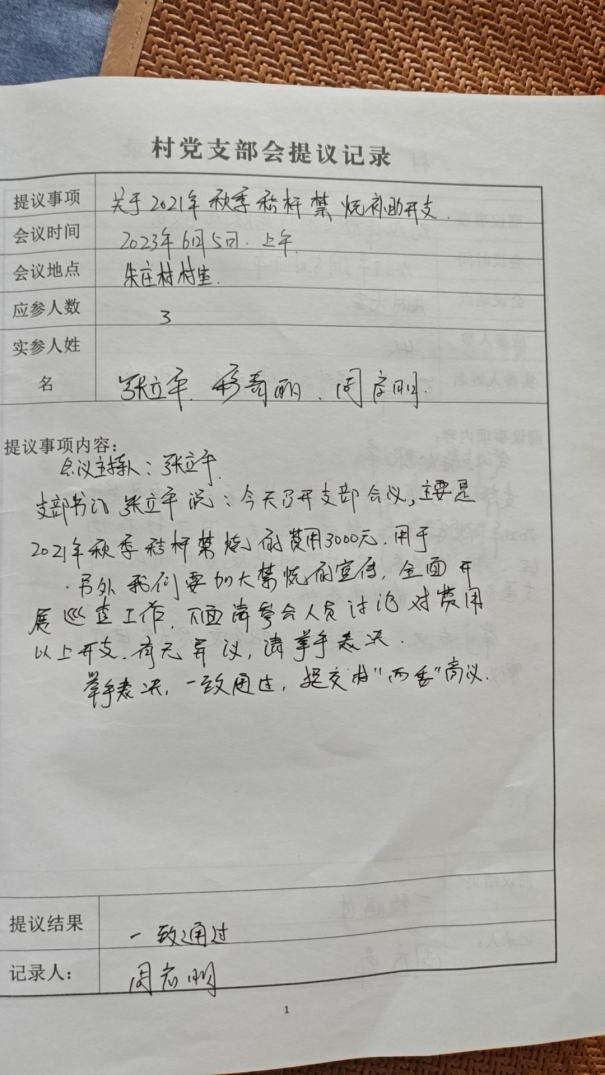 村党支部会提议记录
提议事项 关于2021年秋季秸秆禁烧补助开支.
会议时间 2023年6月5日.上午.
会议地点 朱庄村村室.
应参人数 3
实参人姓名 张立平. 丽. 周 明.
提议事项内容:
会议主持人:张立平.
支部书记张立平说:今天召开支部会议,主要是
2021年秋季秸秆禁烧的费用3000元.用于
.另外我们要加大禁烧的宣传,全面开
展巡查工作,下面请参会人员讨论对费用
以上开支.有无异议,请举手表决.
举手表决,一致通过,提交村"两委"商议.
提议结果 一致通过
记录人: 周 明
1